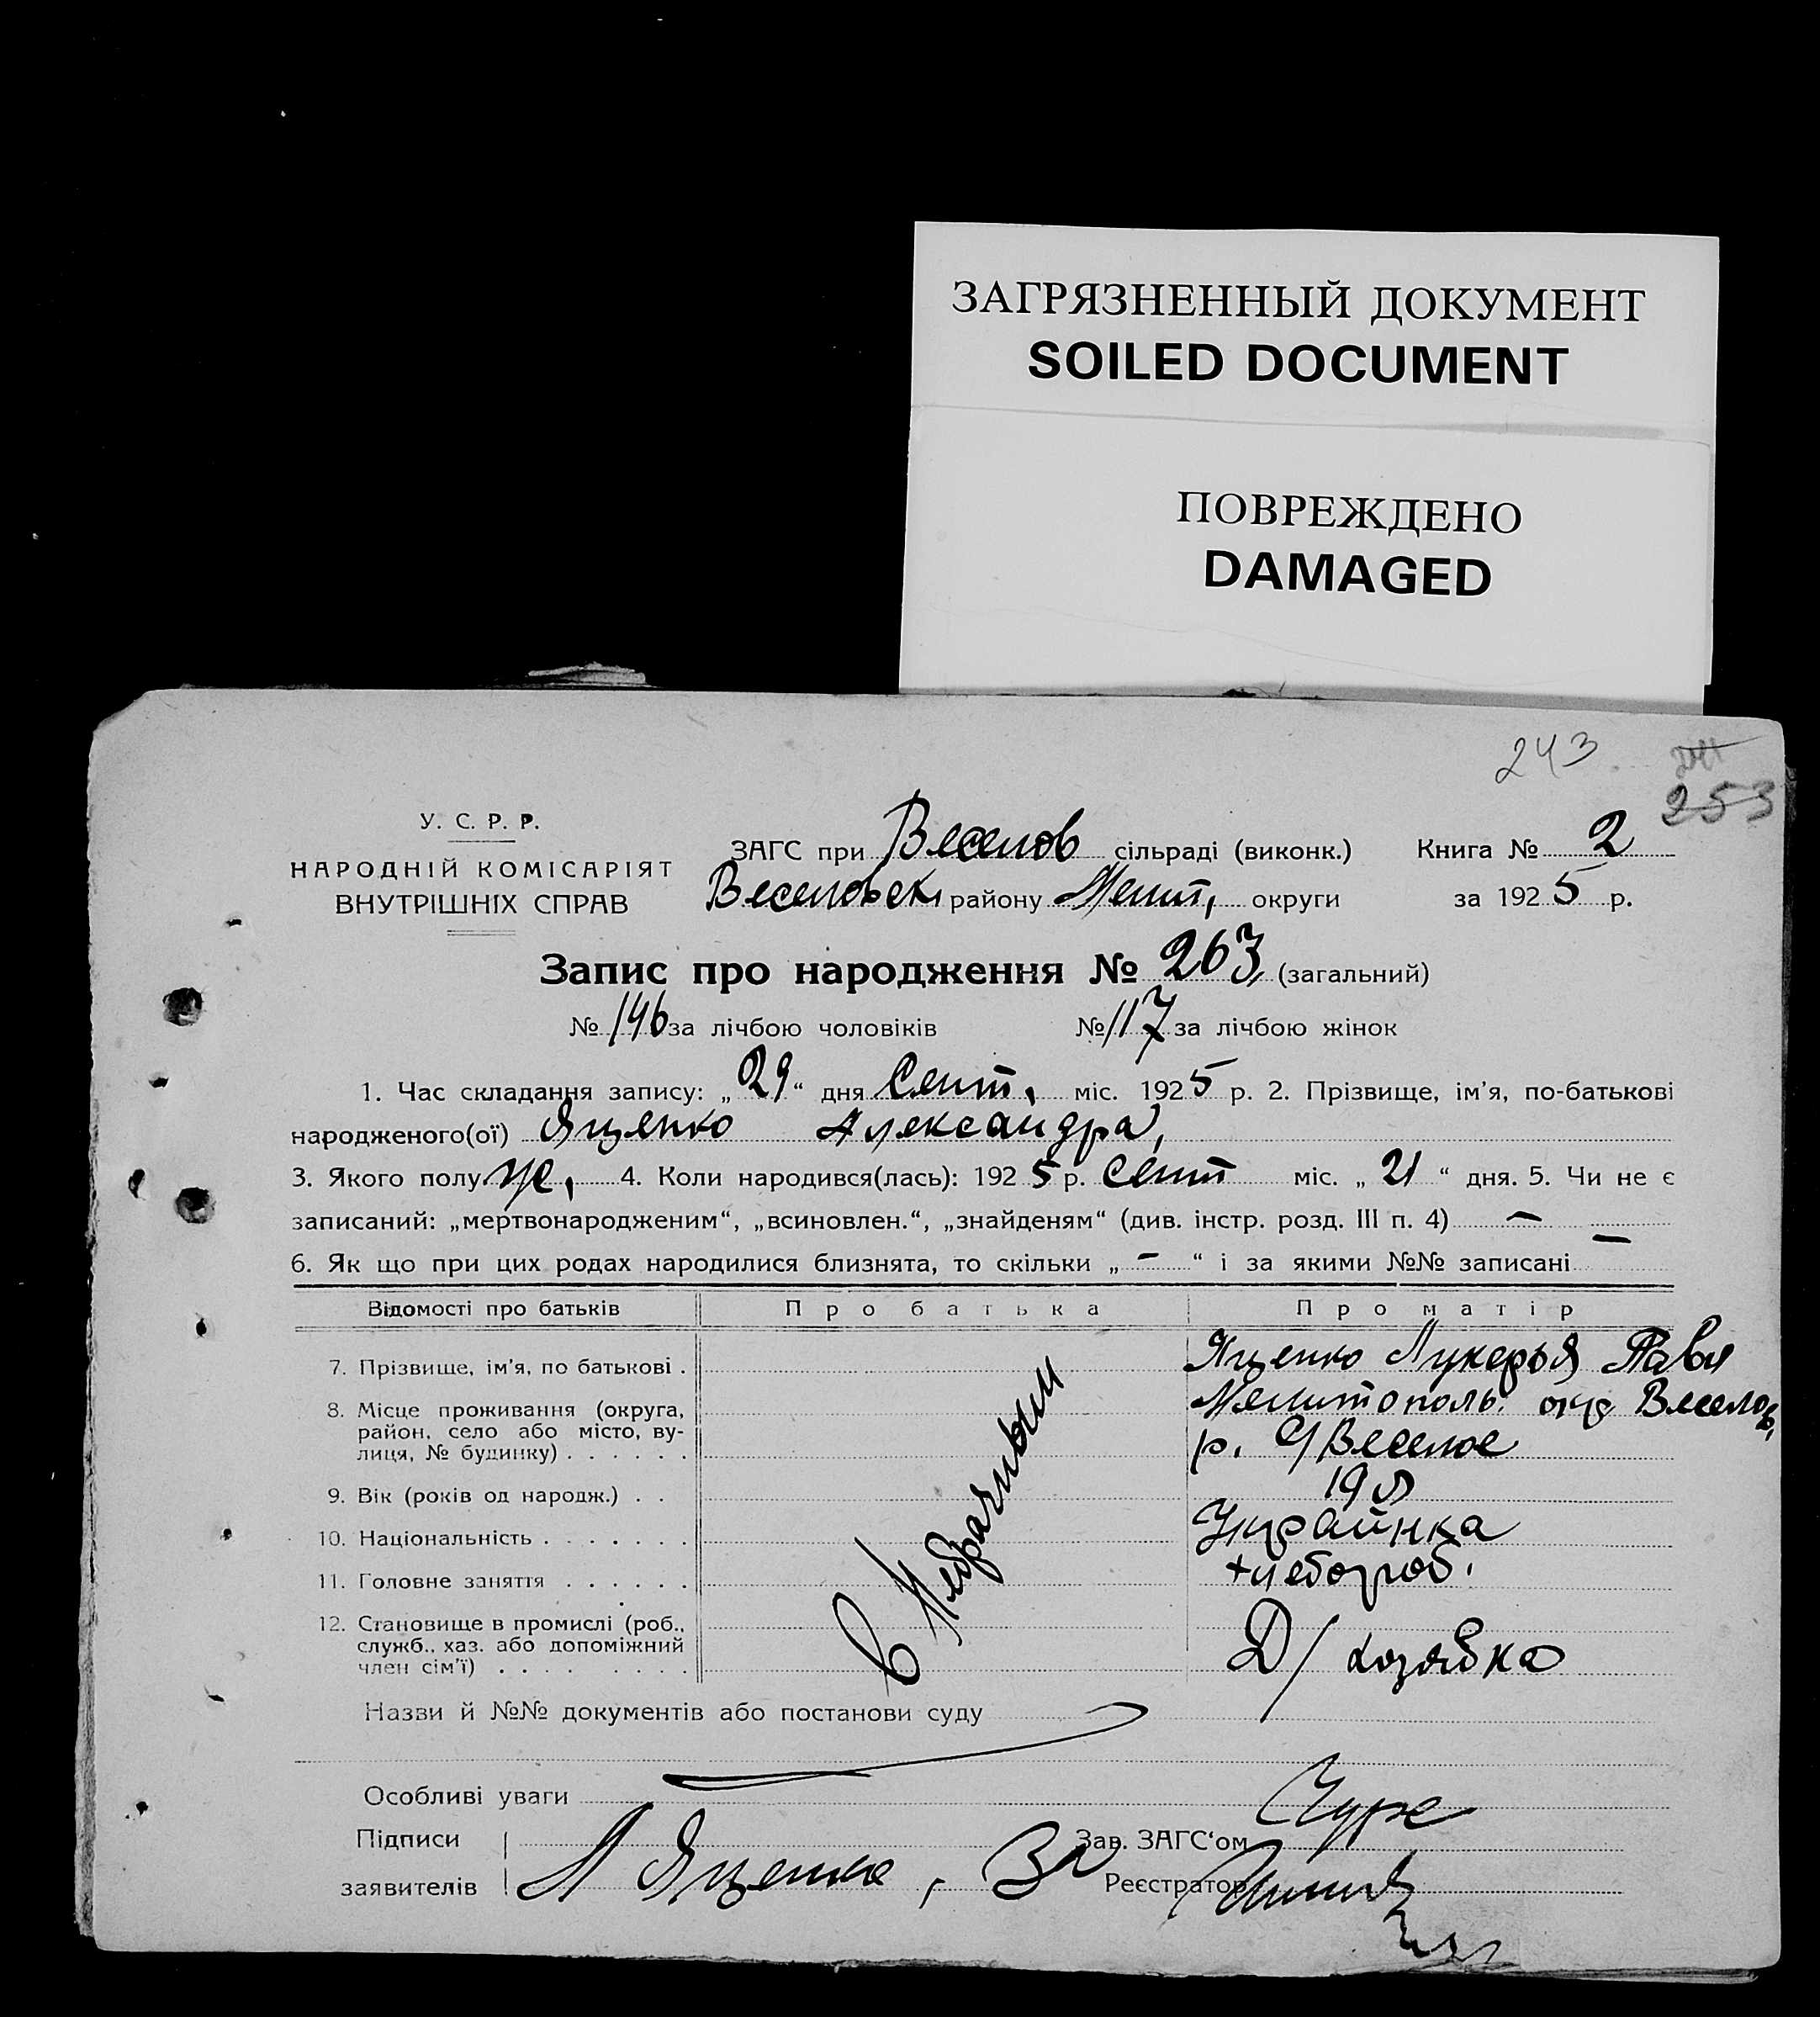 ЗАГРЯЗНЕННЫЙ ДОКУМЕНТ
SOILED DOCUMENT
ПОВРЕЖДЕНО
DAMAGED
243
253
У. С. Р. Р.
НАРОДНІЙ КОМІСАРІЯТ
ВНУТРІШНІХ СПРАВ
ЗАГС при Веселов сільраді (виконк.) Книга № 2
Веселовск району Мелит, округи за 1925 р.
Запис про народження № 263 (загальний)
№ 146 за лічбою чоловіків № 117 за лічбою жінок
1. Час складання запису: „29“ дня Сент, міс. 1925 р. 2. Прізвище, ім'я, по-батькові
народженого(ої) Яценко Александра,
3. Якого полу ж, 4. Коли народився(лась): 1925 р. Сент міс. „21“ дня. 5. Чи не є
записаний: „мертвонародженим“, „всиновлен.“, „знайденям“ (див. інстр. розд. III п. 4) —
6. Як що при цих родах народилися близнята, то скільки „—“ і за якими №№ записані —
Відомості про батьків Про батька Про матір
7. Прізвище, ім'я, по батькові . Яценко Лукерья Павл
8. Місце проживання (округа, район, село або місто, вулиця, № будинку) . . . . . . Мелитополь. окр Веселов,
р. С/Веселое
9. Вік (років од народж.) . . 19 л
10. Національність . . . . . . . Украинка
11. Головне заняття . . . . . . хлебороб.
12. Становище в промислі (роб., служб., хаз. або допоміжний член сім'ї) . . . . . . . . Д/хозяйка
Назви й №№ документів або постанови суду
Особливі уваги
Підписи Зав. ЗАГС'ом
заявителів Л Яценко, За Реєстратор